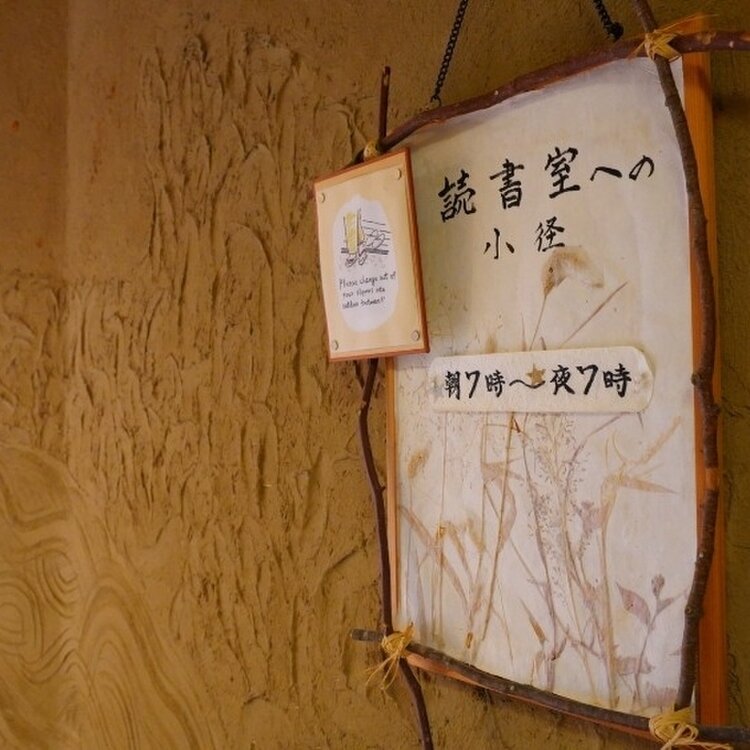 読書室への
小径
朝7時〜夜7時
Please change out of
your slippers